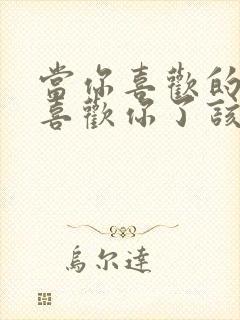 當你喜歡的
喜歡你了該
烏尔達